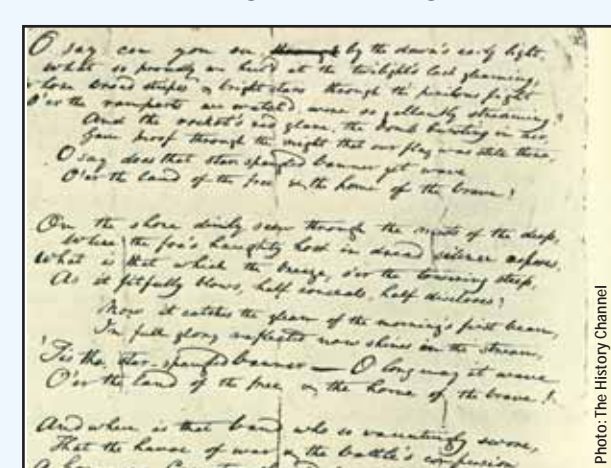 O say can you see, ~~through~~ by the dawn's early light,
What so proudly we hail'd at the twilight's last gleaming,
Whose broad stripes & bright stars through the perilous fight
O'er the ramparts we watch'd, were so gallantly streaming?
And the rocket's red glare, the bomb bursting in air,
Gave proof through the night that our flag was still there,
O say does that star-spangled banner yet wave
O'er the land of the free & the home of the brave?
On the shore dimly seen through the mists of the deep,
Where the foe's haughty host in dread silence reposes,
What is that which the breeze, o'er the towering steep,
As it fitfully blows, half conceals, half discloses?
Now it catches the gleam of the morning's first beam,
In full glory reflected now shines in the stream,
'Tis the star-spangled banner — O long may it wave
O'er the land of the free & the home of the brave!
And where is that band who so vauntingly swore,
That the havoc of war & the battle's confusion
A home
Photo: The History Channel